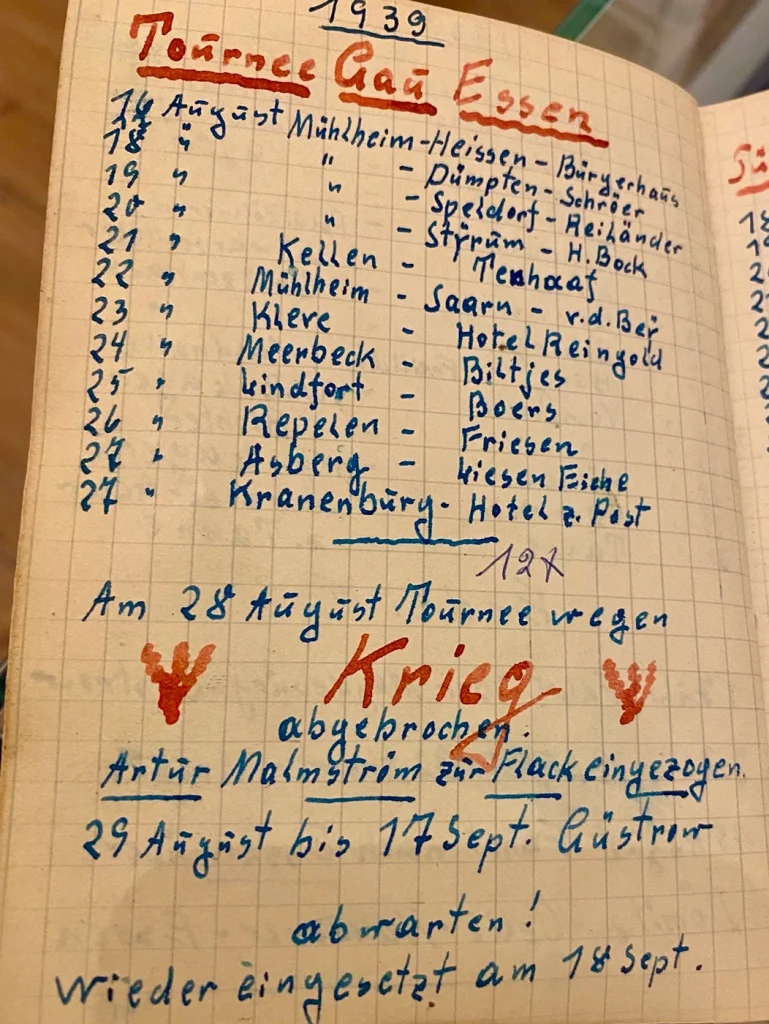 1939
Tournee Gau Essen
August Mühlheim-Heissen - Bürgerhaus
18 " " - Dümpten - Schröer
19 " " - Speldorf - Reiländer
20 " " - Styrum - H. Bock
21 " Kellen - Tenhaaf
22 " Mühlheim - Saarn - v.d. Bey
23 " Kleve - Hotel Reingold
24 " Meerbeck - Biltjes
25 " Lindfort - Boers
26 " Repelen - Friesen
27 " Asberg - Liesen Eiche
27 " Kranenburg - Hotel z. Post
12x
Am 28 August Tournee wegen
Krieg
abgebrochen.
Artur Malmström zur Flack eingezogen.
29 August bis 17 Sept. Güstrow
abwarten!
Wieder eingesetzt am 18 Sept.